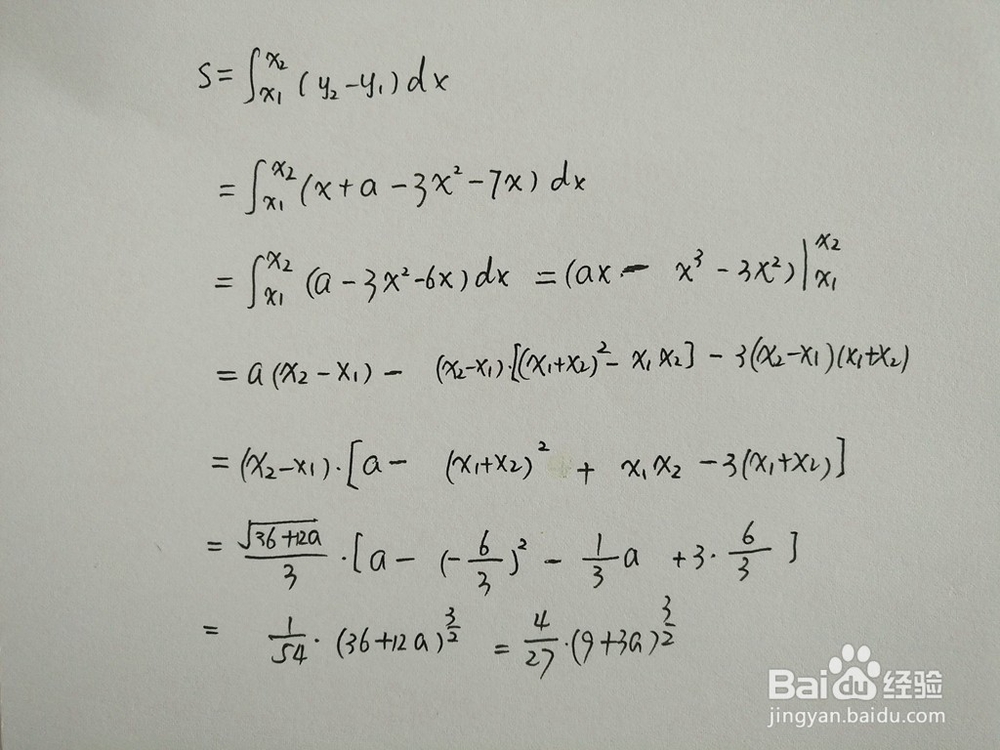 S=∫_{x₁}^{x₂}(y₂-y₁)dx
=∫_{x₁}^{x₂}(x+a-3x²-7x)dx
=∫_{x₁}^{x₂}(a-3x²-6x)dx =(ax- x³-3x²)|_{x₁}^{x₂}
=a(x₂-x₁)- (x₂-x₁)·[(x₁+x₂)²-x₁x₂]-3(x₂-x₁)(x₁+x₂)
=(x₂-x₁)·[a- (x₁+x₂)² + x₁x₂-3(x₁+x₂)]
=√(36+12a)/3·[a- (-6/3)²-1/3a +3·6/3]
= 1/54·(36+12a)^{3/2} =4/27·(9+3a)^{3/2}
Bai du 经验
jingyan.baidu.com